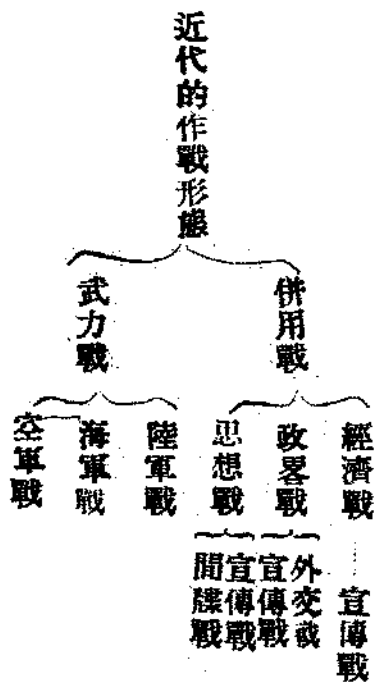 近代的作戰形態
併用戰
武力戰
經濟戰
政畧戰
思想戰
陸軍戰
海軍戰
空軍戰
宣傳戰
外交戰
宣傳戰
宣傳戰
間諜戰